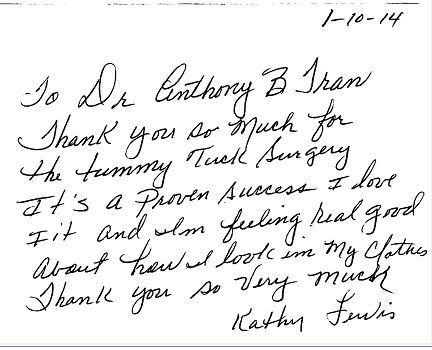 1-10-14
To Dr Anthony B Tran
Thank you so Much for
the tummy Tuck Surgery
It's a Proven Success I love
I it and I'm feeling real good
About how I look in My Clothes
Thank you so Very Much
Kathy